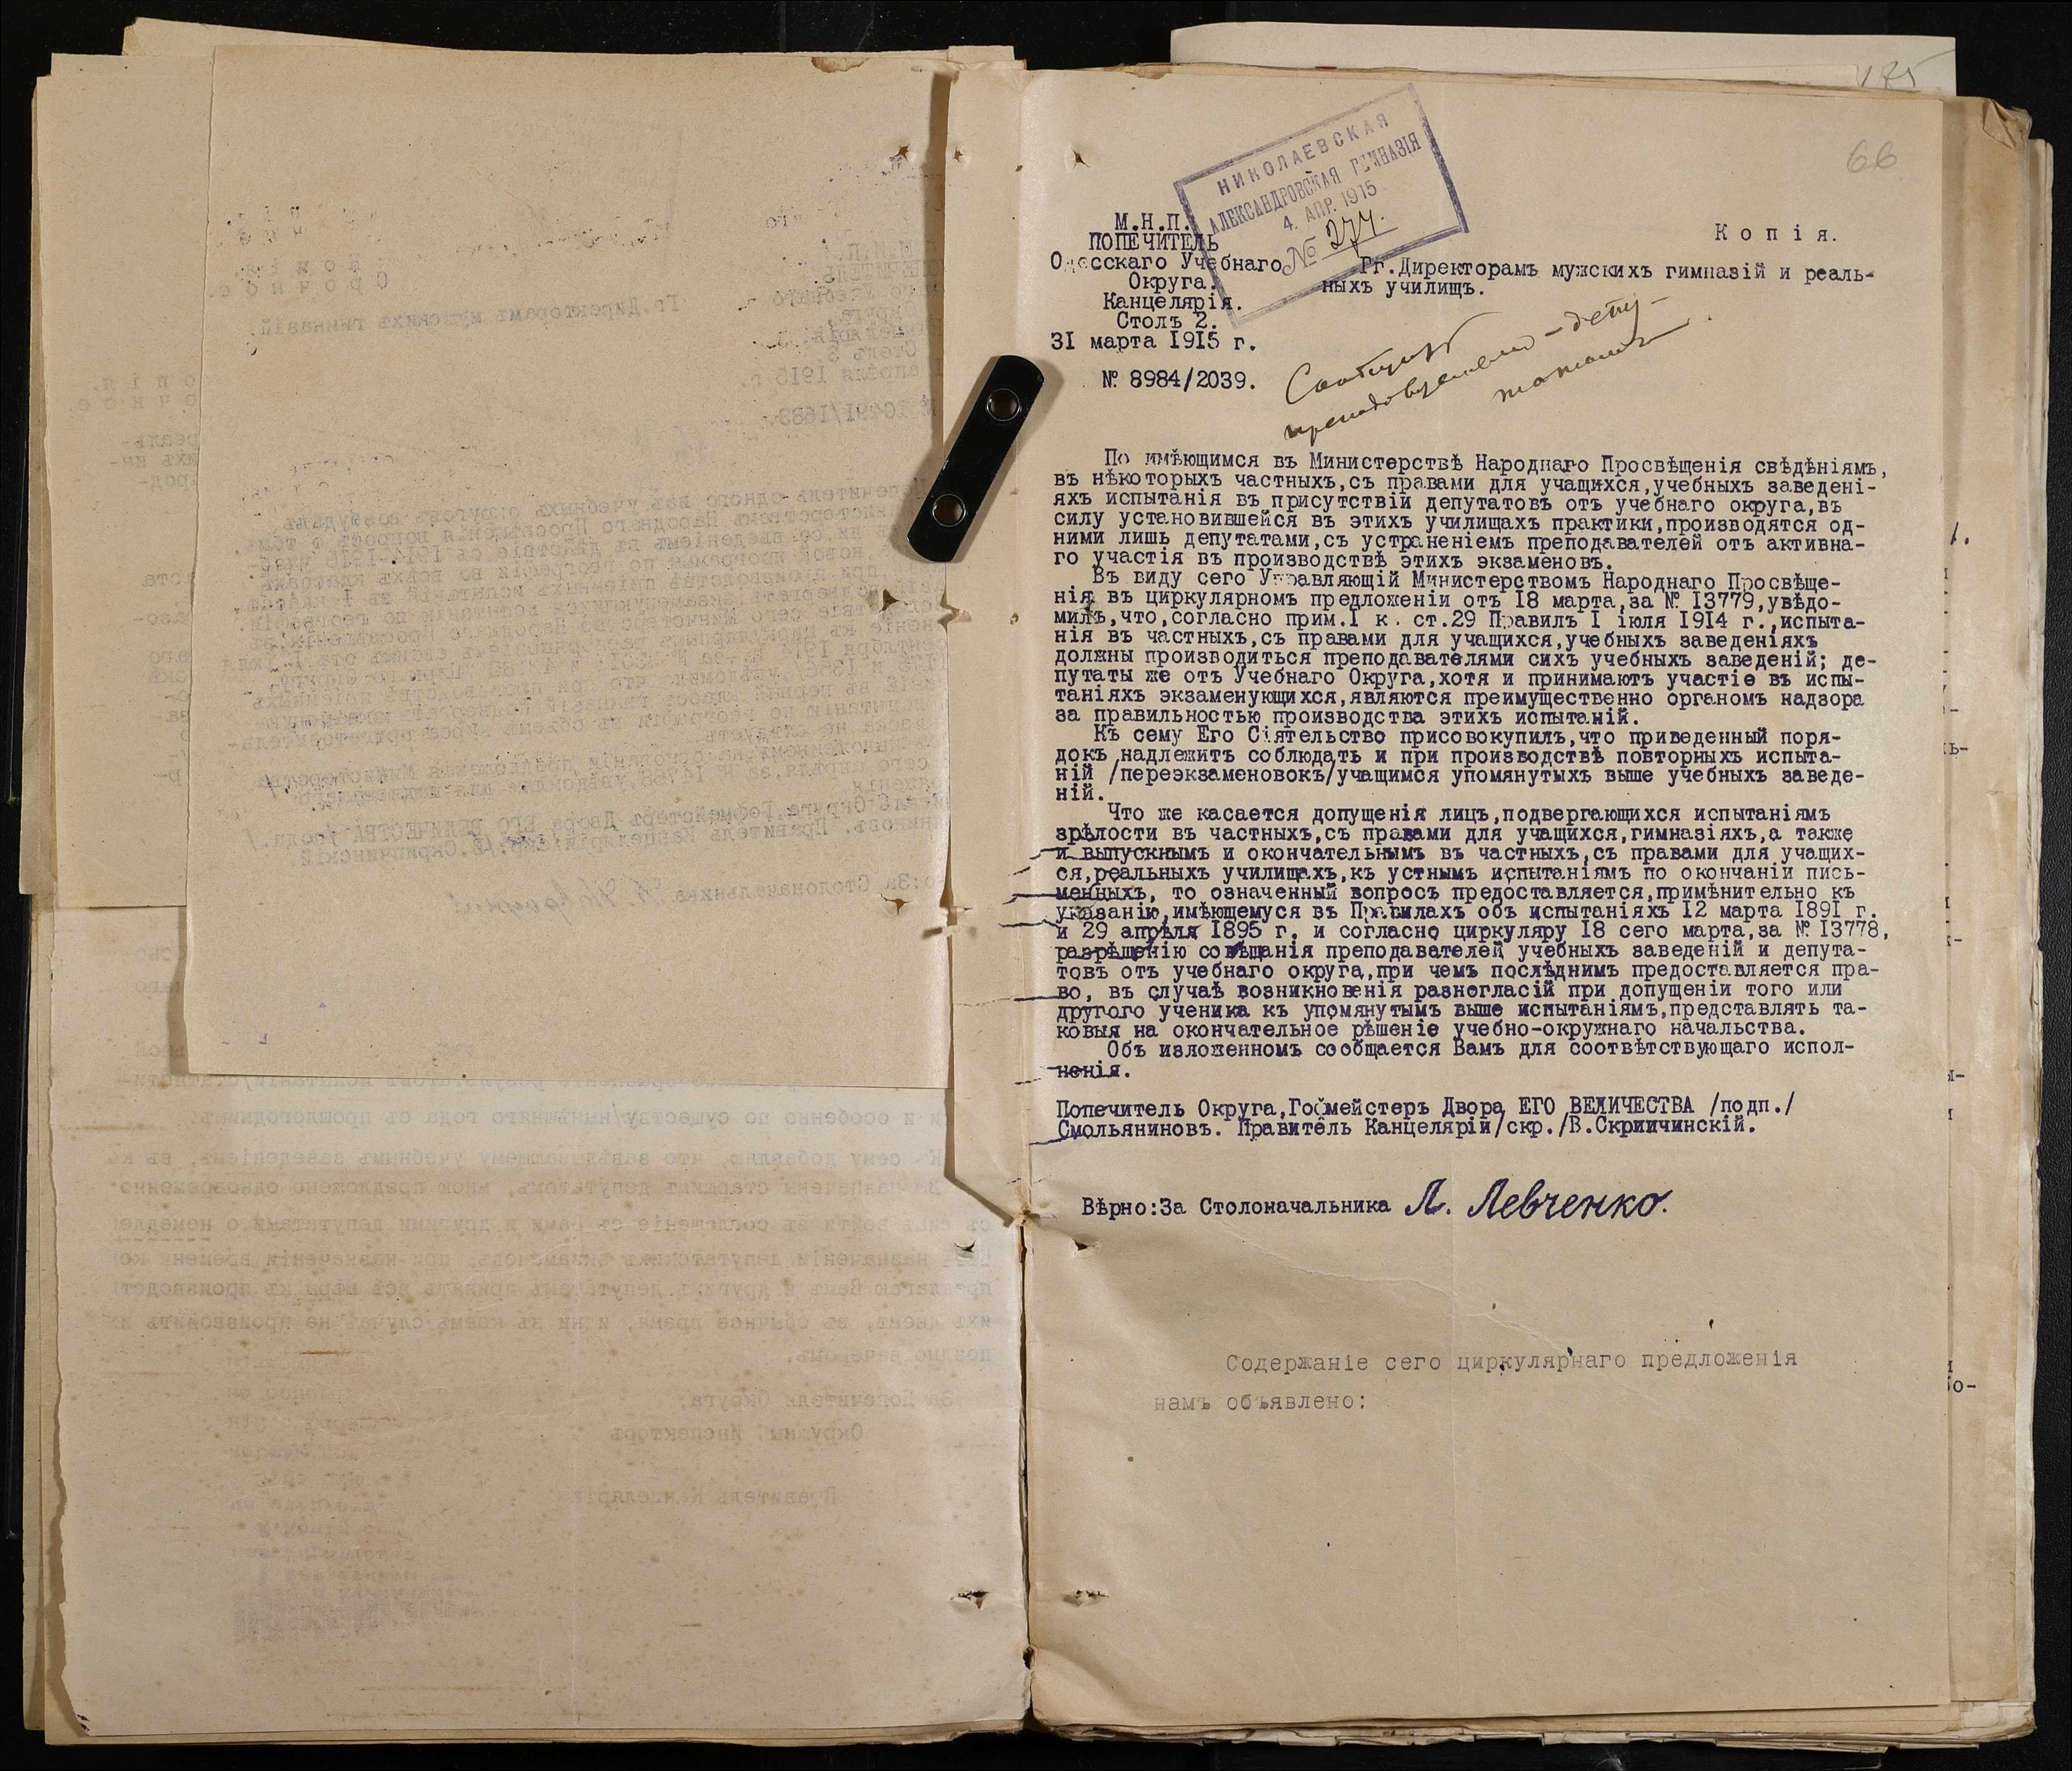 175
66
НИКОЛАЕВСКАЯ
АЛЕКСАНДРОВСКАЯ ГИМНАЗІЯ
4. АПР. 1915
№ 277.
М.Н.П.
ПОПЕЧИТЕЛЬ
Одесскаго Учебнаго
Округа.
Канцелярія.
Столъ 2.
31 марта 1915 г.
№ 8984/2039.
Копія.
Гг.Директорамъ мужскихъ гимназій и реаль-
ныхъ училищъ.
преподавателямъ-депу-
татамъ.
По имѣющимся въ Министерствѣ Народнаго Просвѣщенія свѣдѣніямъ,
въ нѣкоторыхъ частныхъ,съ правами для учащихся,учебныхъ заведені-
яхъ испытанія въ присутствіи депутатовъ отъ учебнаго округа,въ
силу установившейся въ этихъ училищахъ практики,производятся од-
ними лишь депутатами,съ устраненіемъ преподавателей отъ активна-
го участія въ производствѣ этихъ экзаменовъ.
Въ виду сего Управляющій Министерствомъ Народнаго Просвѣще-
нія въ циркулярномъ предложеніи отъ 18 марта,за № 13779,увѣдо-
милъ,что,согласно прим.I к. ст.29 Правилъ I іюля 1914 г.,испыта-
нія въ частныхъ,съ правами для учащихся,учебныхъ заведеніяхъ
должны производиться преподавателями сихъ учебныхъ заведеній; де-
путаты же отъ Учебнаго Округа,хотя и принимаютъ участіе въ испы-
таніяхъ экзаменующихся,являются преимущественно органомъ надзора
за правильностью производства этихъ испытаній.
Къ сему Его Сіятельство присовокупилъ,что приведенный поря-
докъ надлежитъ соблюдать и при производствѣ повторныхъ испыта-
ній /переэкзаменовокъ/учащимся упомянутыхъ выше учебныхъ заведе-
ній.
Что же касается допущенія лицъ,подвергающихся испытаніямъ
зрѣлости въ частныхъ,съ правами для учащихся,гимназіяхъ,а также
и выпускнымъ и окончательнымъ въ частныхъ,съ правами для учащих-
ся,реальныхъ училищахъ,къ устнымъ испытаніямъ по окончаніи пись-
менныхъ, то означенный вопросъ предоставляется,примѣнительно къ
указанію,имѣющемуся въ Правилахъ объ испытаніяхъ 12 марта 1891 г.
и 29 апрѣля 1895 г. и согласно циркуляру 18 сего марта,за № 13778,
разрѣшенію совѣщанія преподавателей учебныхъ заведеній и депута-
товъ отъ учебнаго округа,при чемъ послѣднимъ предоставляется пра-
во, въ случаѣ возникновенія разногласій при допущеніи того или
другого ученика къ упомянутымъ выше испытаніямъ,представлять та-
ковыя на окончательное рѣшеніе учебно-окружнаго начальства.
Объ изложенномъ сообщается Вамъ для соотвѣтствующаго испол-
ненія.
Попечитель Округа,Гофмейстеръ Двора ЕГО ВЕЛИЧЕСТВА /подп./
Смольяниновъ. Правитель Канцеляріи/скр./В.Скрипчинскій.
Вѣрно:За Столоначальника Л. Левченко.
Содержаніе сего циркулярнаго предложенія
намъ объявлено: